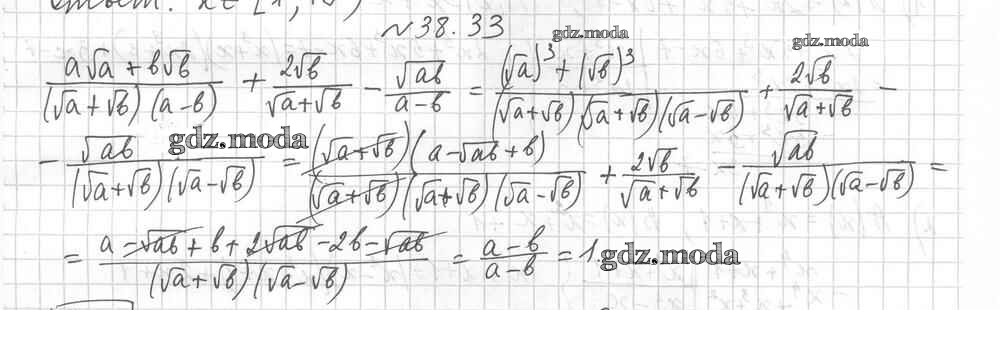 №38.33
gdz.moda
gdz.moda
(a√a + b√b)/((√a + √b)(a − b)) + 2√b/(√a + √b) − √ab/(a − b) = ((√a)³ + (√b)³)/((√a + √b)(√a + √b)(√a − √b)) + 2√b/(√a + √b) −
− √ab/((√a + √b)(√a − √b)) = ((√a + √b)(a − √ab + b))/((√a + √b)(√a + √b)(√a − √b)) + 2√b/(√a + √b) − √ab/((√a + √b)(√a − √b)) =
gdz.moda
= (a − √ab + b + 2√ab − 2b − √ab)/((√a + √b)(√a − √b)) = (a − b)/(a − b) = 1.
gdz.moda